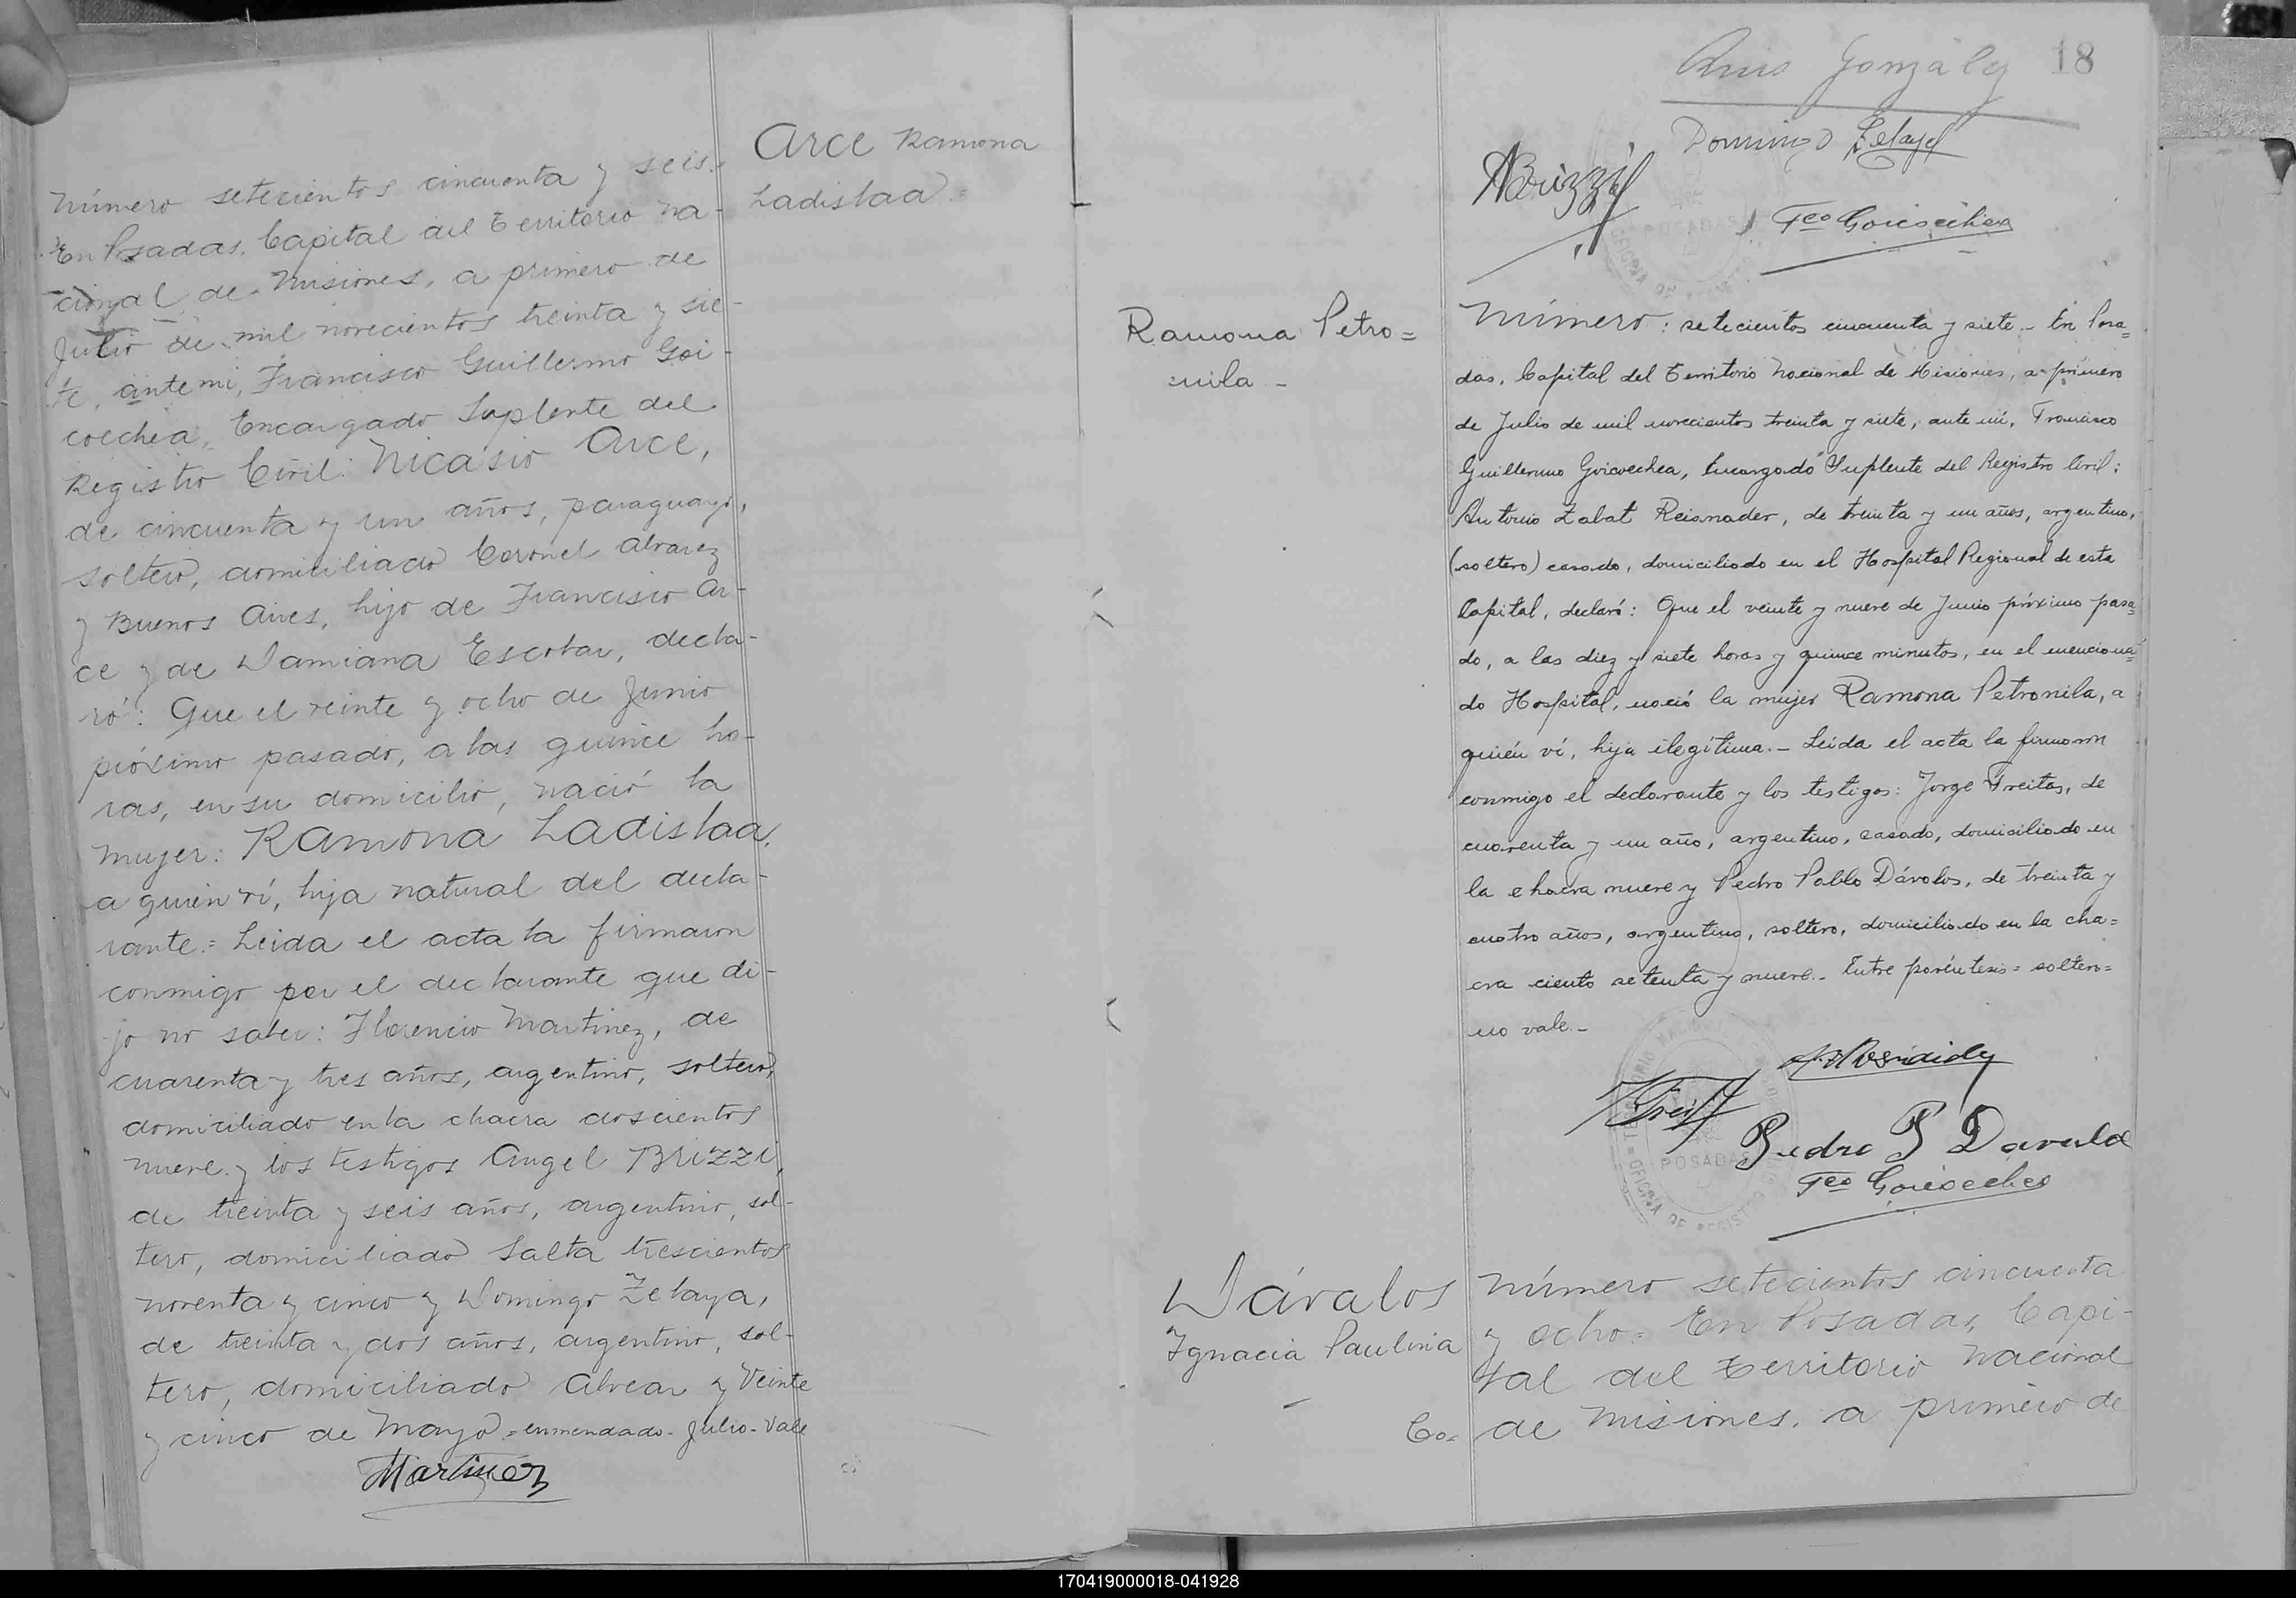 Arce Ramona
Ladislaa =
Número setecientos cincuenta y seis.=
En Posadas, Capital del Territorio Na-
cional de Misiones, a primero de
Julio de mil novecientos treinta y sie-
te, ante mi, Francisco Guillermo Goi-
coechea, Encargado Suplente del
Registro Civil: Nicasio Arce,
de cincuenta y un años, paraguayo,
soltero, domiciliado Coronel Alvarez
y Buenos Aires, hijo de Francisco Ar-
ce y de Damiana Escobar, decla-
ró: Que el veinte y ocho de Junio
próximo pasado, a las quince ho-
ras, en su domicilio, nació la
mujer: Ramona Ladislaa,
a quien ví, hija natural del decla-
rante.= Leida el acta la firmaron
conmigo por el declarante que di-
jo no saber: Florencio Martinez, de
cuarenta y tres años, argentino, soltero,
domiciliado en la chacra doscientos
nueve y los testigos Angel Brizzi,
de treinta y seis años, argentino, sol-
tero, domiciliado Salta trescientos
noventa y cinco y Domingo Zelaya,
de treinta y dos años, argentino, sol-
tero, domiciliado Alvear y Veinte
y cinco de Mayo = enmendado - Julio - Vale
FMartinez
18
González
Domingo Zelaya
ABrizzi
POSADAS
Fco Goicoechea
Ramona Petro=
nila -
Número: setecientos cincuenta y siete.- En Posa=
das, Capital del Territorio Nacional de Misiones, a primero
de Julio de mil novecientos treinta y siete, ante mí, Francisco
Guillermo Goicoechea, Encargado Suplente del Registro Civil:
Antonio Zabat Reisnader, de treinta y un años, argentino,
(soltero) casado, domiciliado en el Hospital Regional de esta
Capital, declaró: Que el veinte y nueve de Junio próximo pasa=
do, a las diez y siete horas y quince minutos, en el menciona=
do Hospital, nació la mujer Ramona Petronila, a
quién ví, hija ilegítima.- Leida el acta la firmaron
conmigo el declarante y los testigos: Jorge Freitas, de
cuarenta y un año, argentino, casado, domiciliado en
la chacra nueve y Pedro Pablo Dávalos, de treinta y
cuatro años, argentino, soltero, domiciliado en la cha=
cra ciento setenta y nueve.- Entre paréntesis = soltero=
no vale.-
Pedro P Davalo
POSADAS
Fco Goicoechea
Dávalos
Ignacia Paulina
-
Número setecientos cincuenta
y ocho = En Posadas, Capi-
tal del Territorio Nacional
de Misiones, a primero de
Co=
170419000018-041928